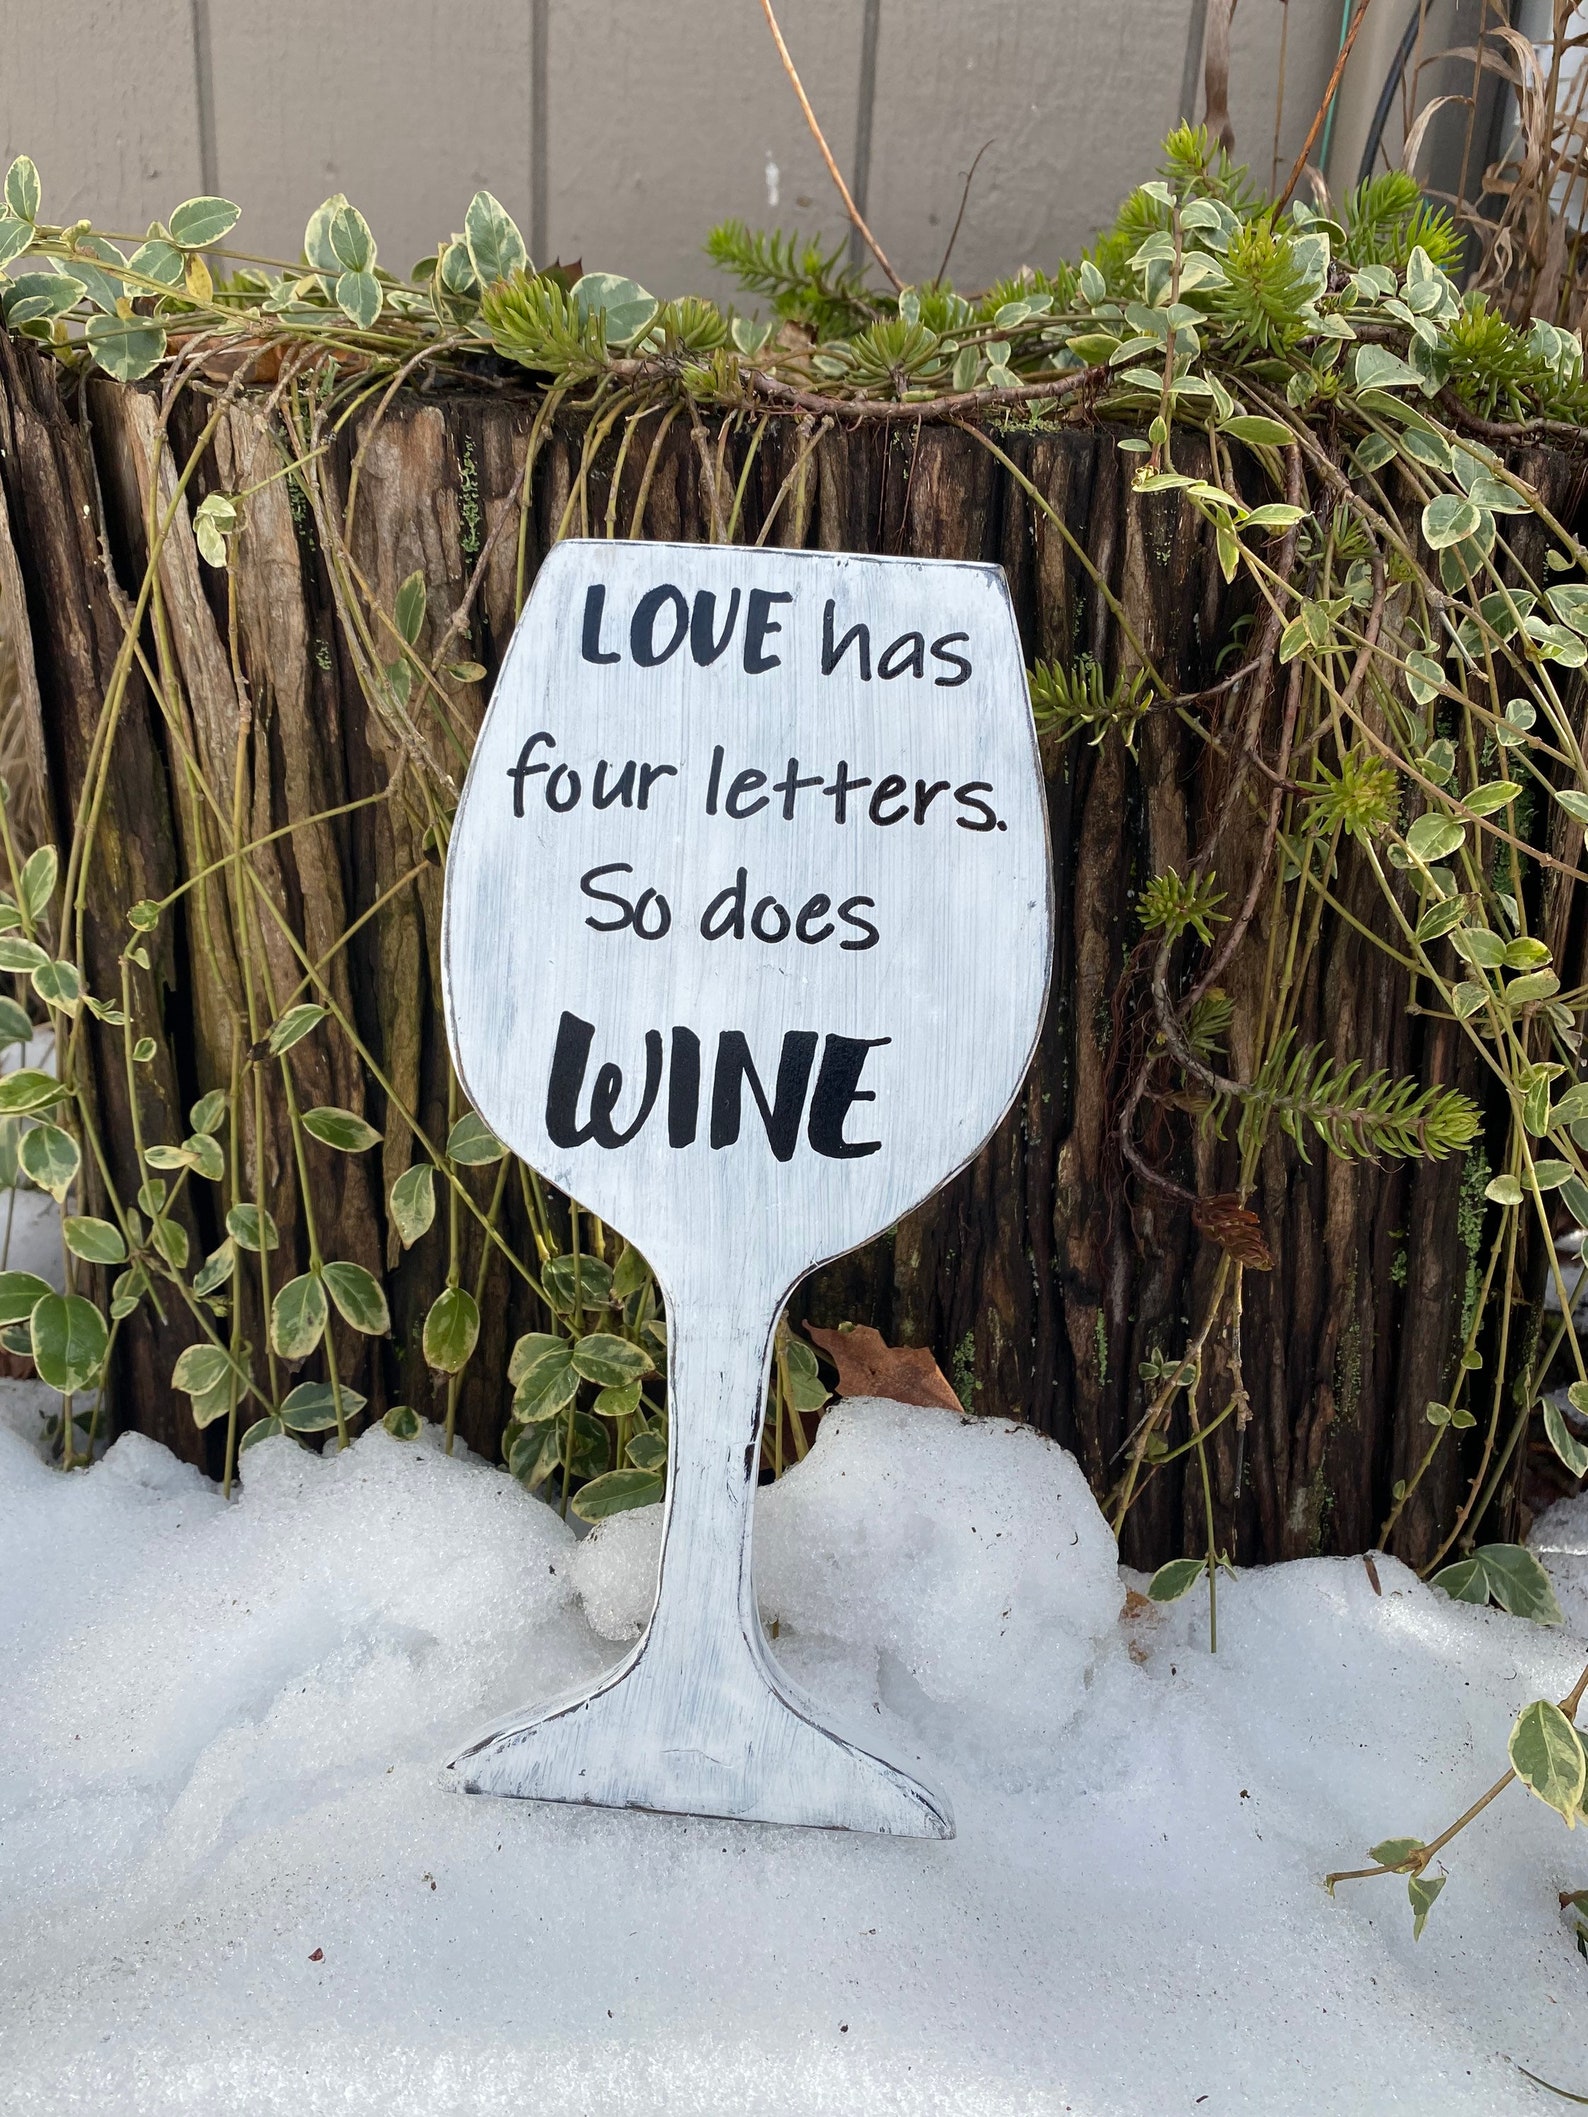 LOVE has
four letters.
So does
WINE